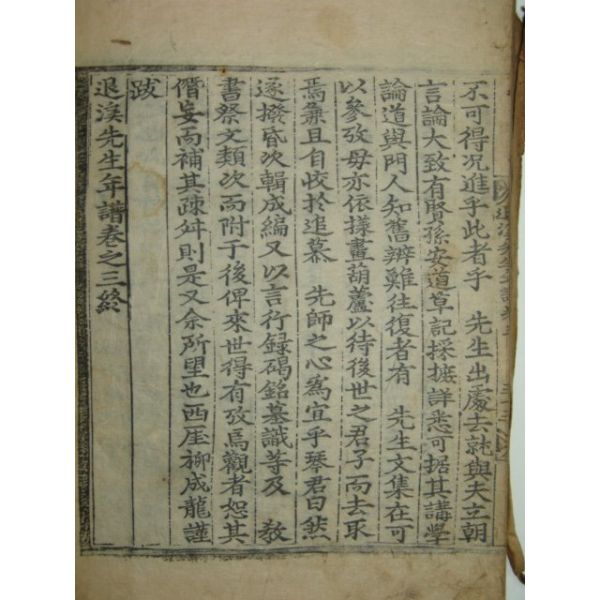 不可得况進乎此者乎　先生出處去就與夫立朝
言論大致有賢孫安道草記採摭詳悉可据其講學
論道與門人知舊辨難往復者有　先生文集在可
以參攷毋亦依㨾畫葫蘆以待後世之君子而去取
焉兼且自效於追慕　先師之心爲宜乎琴君曰然
遂撥昏次輯成編又以言行録碣銘墓識等及　教
書祭文類次而附于後俾來世得有攷焉觀者恕其
僭妄而補其疎舛則是又余所望也西厓柳成龍謹
跋
退溪先生年譜卷之三終